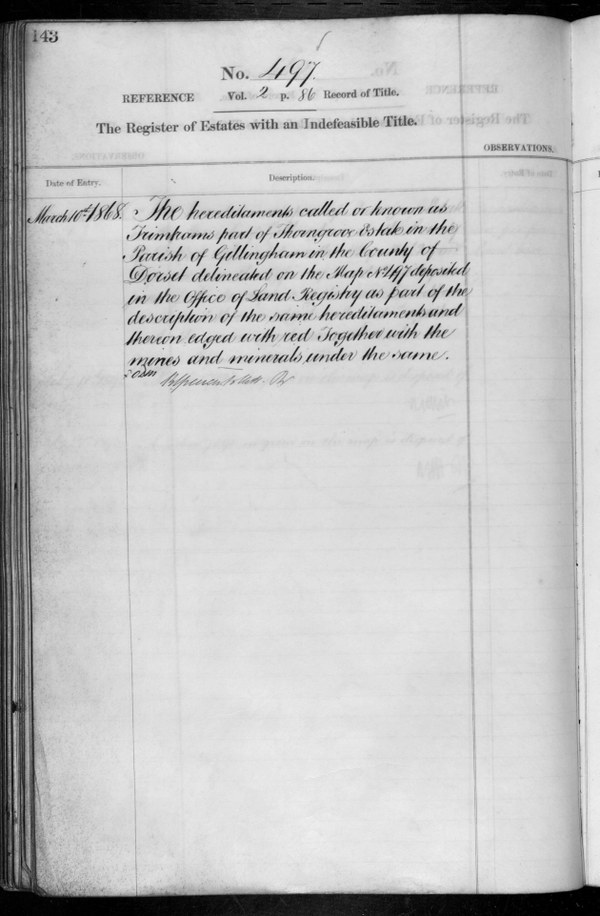 143
No. 497.
REFERENCE Vol. 2 p. 86 Record of Title.
The Register of Estates with an Indefeasible Title.
OBSERVATIONS.
Date of Entry. Description.
March 10th 1868. The hereditaments called or known as
Trimtrams part of Thorngrove Estate in the
Parish of Gillingham in the County of
Dorset delineated on the Map No 497 deposited
in the Office of Land Registry as part of the
description of the same hereditaments and
thereon edged with red Together with the
mines and minerals under the same.